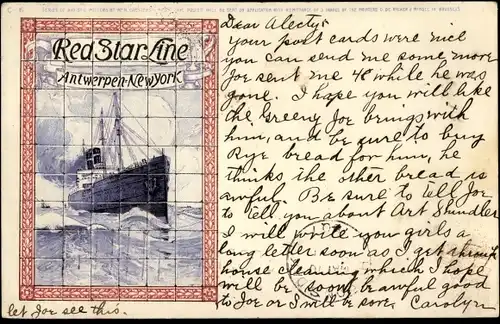 Red Star Line
Antwerpen-New York
Dear Alecty,
Your post cards were nice
you can send me some more
Joe sent me 48 while he was
gone. I hope you will like
the Greeny Joe brings with
him, and be sure to buy
Rye bread for him, he
thinks the other bread is
awful. Be sure to tell Joe
to tell you about Art Shindler
I will write you girls a
long letter soon as I get through
house cleaning which I hope
will be soon, be awful good
to Joe or I will be sore. Carolyn
let Joe see this.